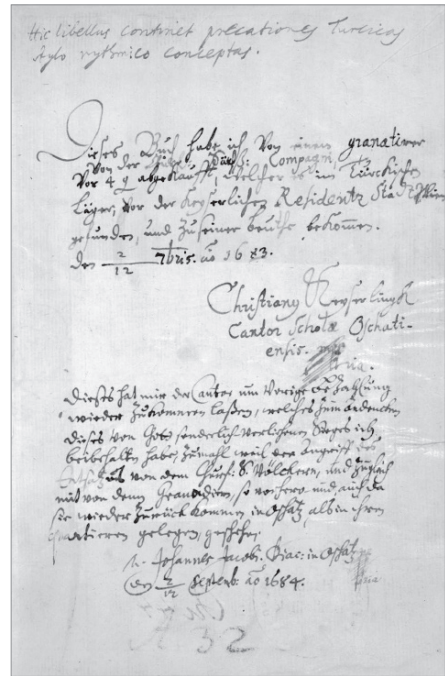 Hic libellus continet precationes Turcicas
stylo rythmico conceptas.
Dieses Buch habe ich Von einem granatirer
Von der Compagni
Vor 4 g abgekaufft, welcher es im Türckischen
Läger, vor der Keyserlichen Residentz Stadt Wien
gefunden, und zu seiner beuthe bekommen.
den 2/12 7bris. aõ 1683.
Christiany Keyserlingk
Cantor Scholæ Oschati-
ensis.
Dieses hat mir der Cantor um Vorige bezahlung
wieder zukommen laßen, welches zum andencken
dieses von Gott sonderlich verliehenen Sieges ich
beibehalten habe, zumahl weil der angriff des
von dem Völckern, und zugleich
mit von denen Granadirn, so vorhero und auch da
sie wieder zurück kommen in Oschatz, als in ihren
quartieren gelegen, geschehen.
M. Johannes Jacobi. Diac: in Oschatz
den 2/12 Septemb. aõ 1684.
32